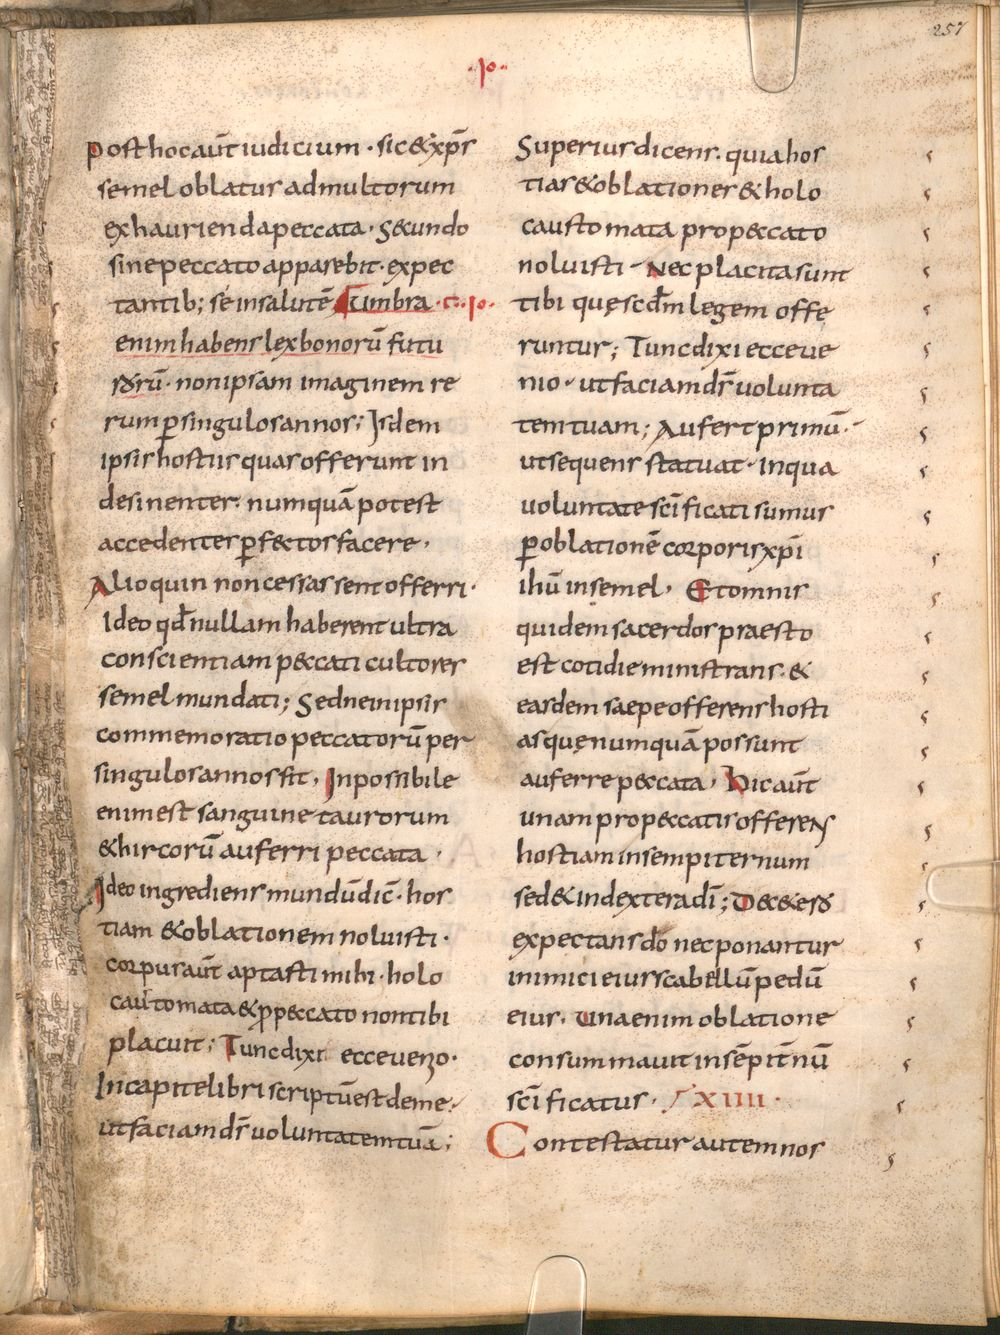 257
·X·
Post hoc aut̄ iudicium · sic & xp̄s
semel oblatus ad multorum
exhaurienda peccata · Secundo
sine peccato apparebit · expec
tantib; se in salutē Umbra ·
enim habens lex bonorū futu
rorū · non ipsam imaginem re
rum p singulos annos; Isdem
ipsis hostiis quas offerunt in
desinenter · numquā potest
accedentes pf&tos facere ·
Alioquin non cessassent offerri ·
Ideo qd̄ nullam haberent ultra
conscientiam p&cati cultores
semel mundati; Sed ne in ipsis
commemoratio peccatorū per
singulos annos fit · Inpossibile
enim est sanguine taurorum
& hircorū auferri peccata ·
Ideo ingrediens mundū dic̄ · hos
tiam & oblationem noluisti ·
corpus aut̄ aptasti mihi · holo
cautomata & p p&cato non tibi
placuit; Tunc dixi ecce uenio ·
In capite libri scriptū est de me ·
ut faciam ds̄ uoluntatem tuā;
Superius dicens · quia hos
tias & oblationes & holo
caustomata pro p&cato
noluisti · Nec placita sunt
tibi quę scd̄m legem offe
runtur; Tunc dixi ecce ue
nio · ut faciam ds̄ uolunta
tem tuam; Aufert primū ·
ut sequens statuat · in qua
uoluntate sc̄ificati sumus
p oblationē corporis xp̄i
ihū in semel · Et omnis
quidem sacerdos praesto
est cotidie ministrans · &
easdem saepe offerens hosti
as quę numquā possunt
auferre p&cata · Hic aut̄
unam pro p&catis offerens
hostiam in sempiternum
sed& in dextera dī; De c&ero
expectans donec ponantur
inimici eius scabellū pedū
eius · Una enim oblatione
consummauit in sēpit̄nū
sc̄ificatus · XIIII ·
Contestatur autem nos